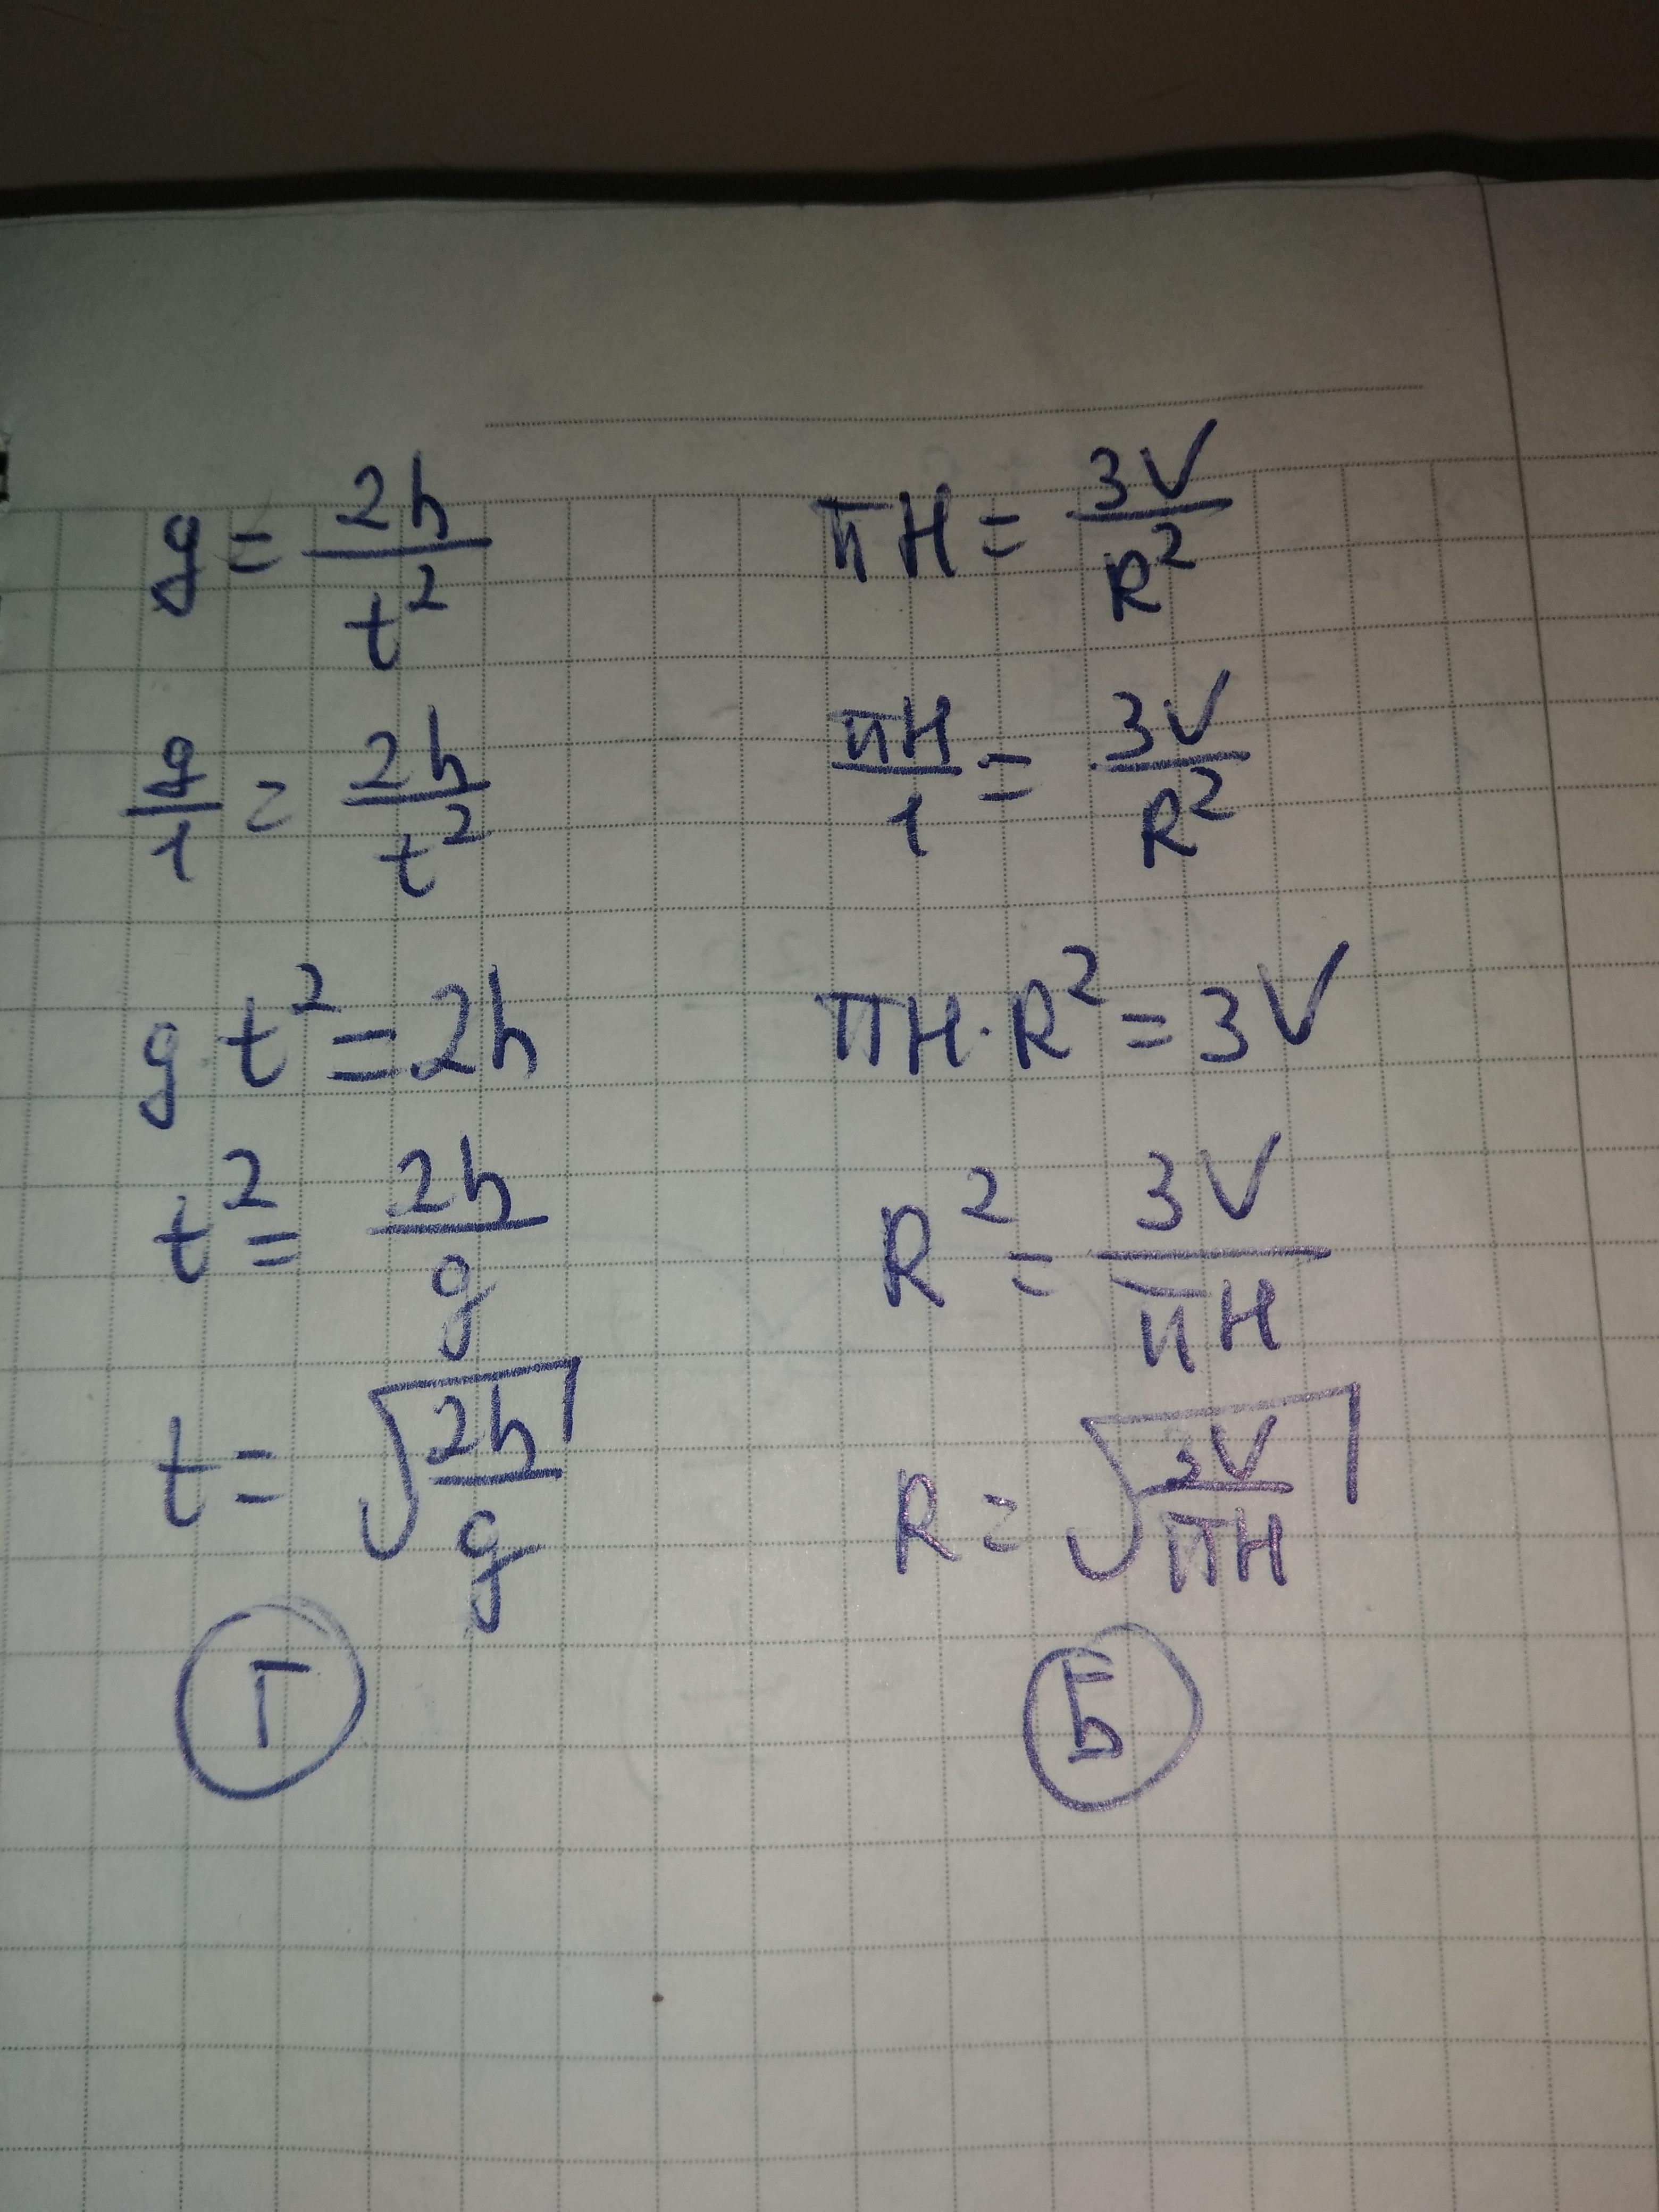 g = 2h/t²
g/1 = 2h/t²
g · t² = 2h
t² = 2h/g
t = √(2h/g)
Г
πH = 3V/R²
πH/1 = 3V/R²
πH · R² = 3V
R² = 3V/πH
R = √(3V/πH)
Б